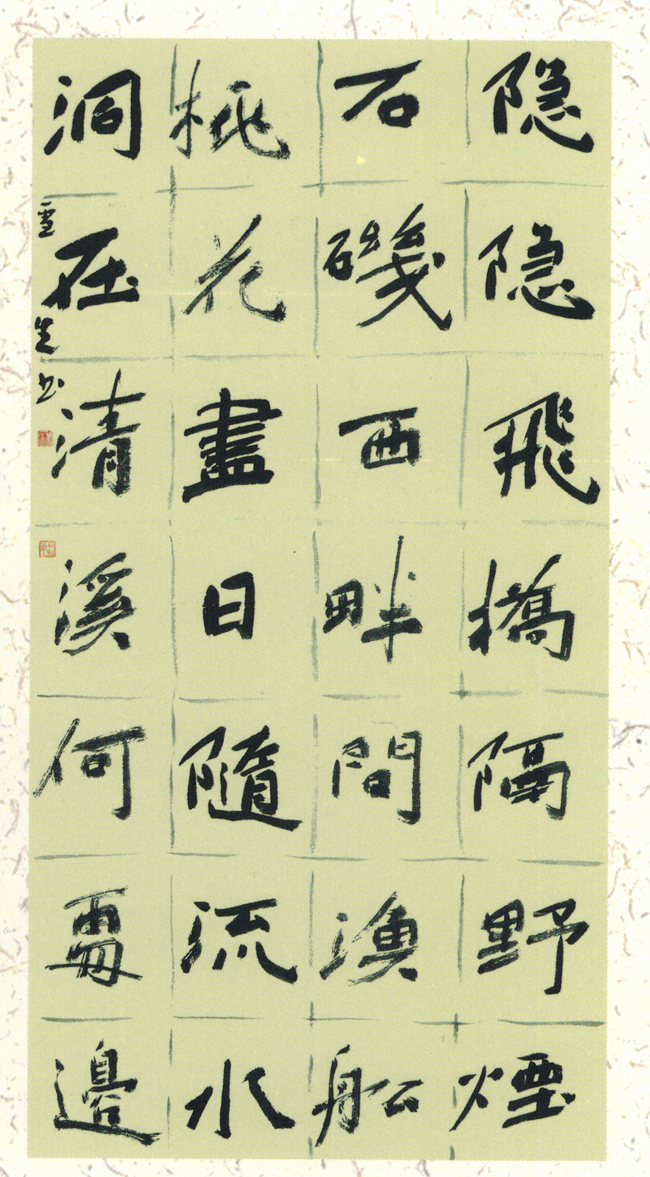 隐隐飛橋隔野煙
石磯西畔問漁船
桃花盡日隨流水
洞在清溪何處邊
雪书